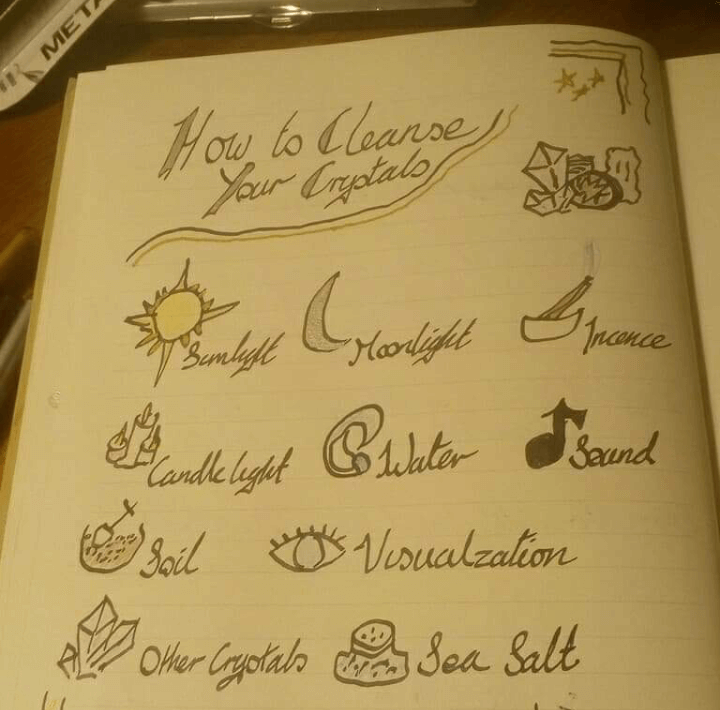 META
How to Cleanse
Your Crystals
Sunlight Moonlight Incence
Candle light Water Sound
Soil Visualzation
Other Crystals Sea Salt